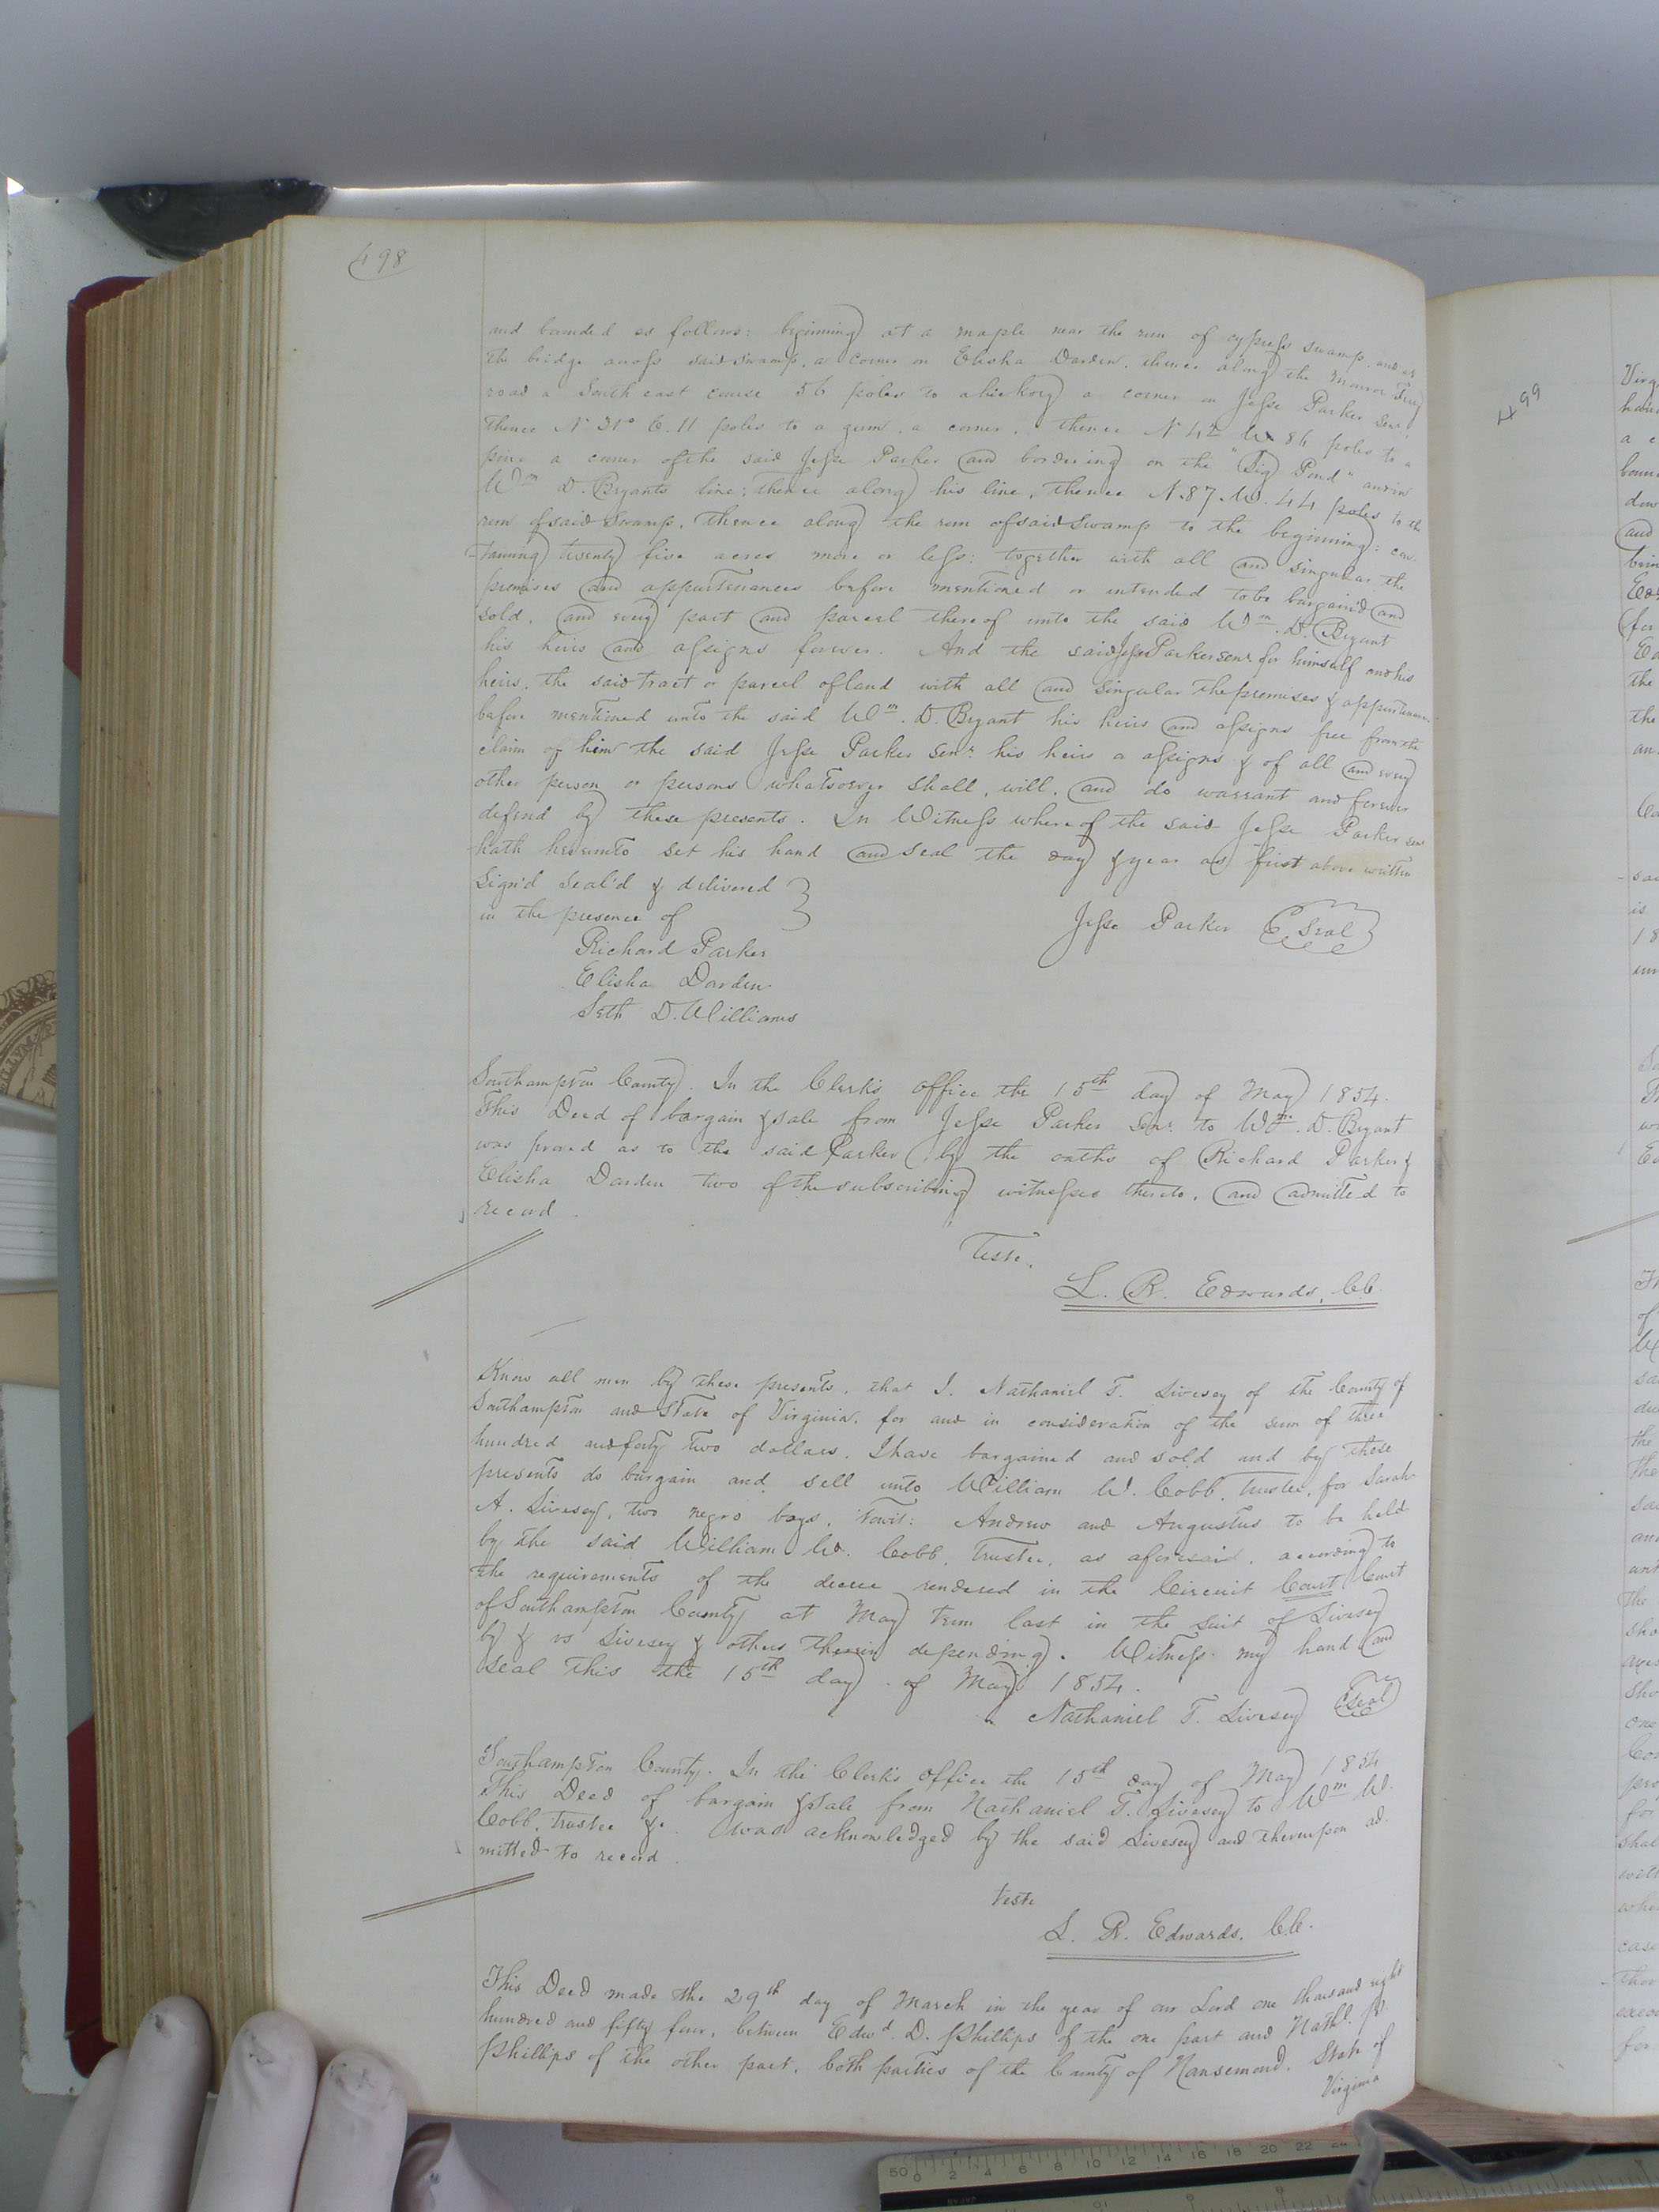 498
and bounded as follows: beginning at a maple near the run of cypress swamp, and at
the bridge across said swamp, a corner on Elisha Darden, thence along the Monroe Ferry
road a South east course 56 poles to a hickory a corner on Jesse Parker Senr,
Thence N E. 11 poles to a gum, a corner, thence N 42 W 86 poles to a
pine a corner of the said Jesse Parker and bordering on the "Big Pond" and in
Wm D. Bryants line; thence along his line, thence N. 87. W. 44 poles to the
run of said Swamp, thence along the run of said Swamp to the beginning: con-
-taining twenty five acres more or less: together with all and singular the
premises and appurtenances before mentioned or intended to be bargain'd and
sold, and every part and parcel thereof unto the said Wm. D. Bryant
his heirs and assigns forever. And the said Jesse Parker senr for himself and his
heirs, the said tract or parcel of land with all and singular the premises & appurtenances
before mentioned unto the said Wm. D. Bryant his heirs and assigns free from the
claim of him the said Jesse Parker Senr his heirs or assigns & of all and every
other person or persons whatsoever shall, will, and do warrant and forever
defend by these presents. In Witness whereof the said Jesse Parker senr
hath hereunto set his hand and seal the day & year as first above written
Sign'd seal'd & delivered
in the presence of
Jesse Parker Seal
Richard Parker
Elisha Darden
Seth D. Williams
Southampton County. In the Clerk's office the 15th day of May 1854.
This Deed of bargain & sale from Jesse Parker Senr to Wm. D. Bryant
was proved as to the said Parker by the oaths of Richard Parker &
Elisha Darden two of the subscribing witnesses thereto, and admitted to
record.
Teste.
L. R. Edwards, C.C.
Know all men by these presents, that I, Nathaniel T. Livesey of the County of
Southampton and State of Virginia, for and in consideration of the sum of three
hundred and forty two dollars, I have bargained and sold and by these
presents do bargain and sell unto William W. Cobb, Trustee, for Sarah
A. Livesey, two negro boys, Towit: Andrew and Augustus to be held
by the said William W. Cobb, Trustee, as aforesaid, according to
the requirements of the decree rendered in the Circuit Court Court
of Southampton County at May term last in the suit of Livesey
by & vs Livesey & others therein depending. Witness my hand and
seal this the 15th day of May 1854.
Nathaniel T. Livesey Seal
Southampton County. In the Clerk's office the 15th day of May 1854
This Deed of bargain & sale from Nathaniel T. Livesey to Wm W.
Cobb, trustee &c. was acknowledged by the said Livesey and thereupon ad-
mitted to record.
Teste
L. R. Edwards, C.C.
This Deed made the 29th day of March in the year of our Lord one thousand eight
hundred and fifty four, between Edwd. D. Phillips of the one part and Nathl.
Phillips of the other part, both parties of the County of Nansemond, State of
Virginia
499